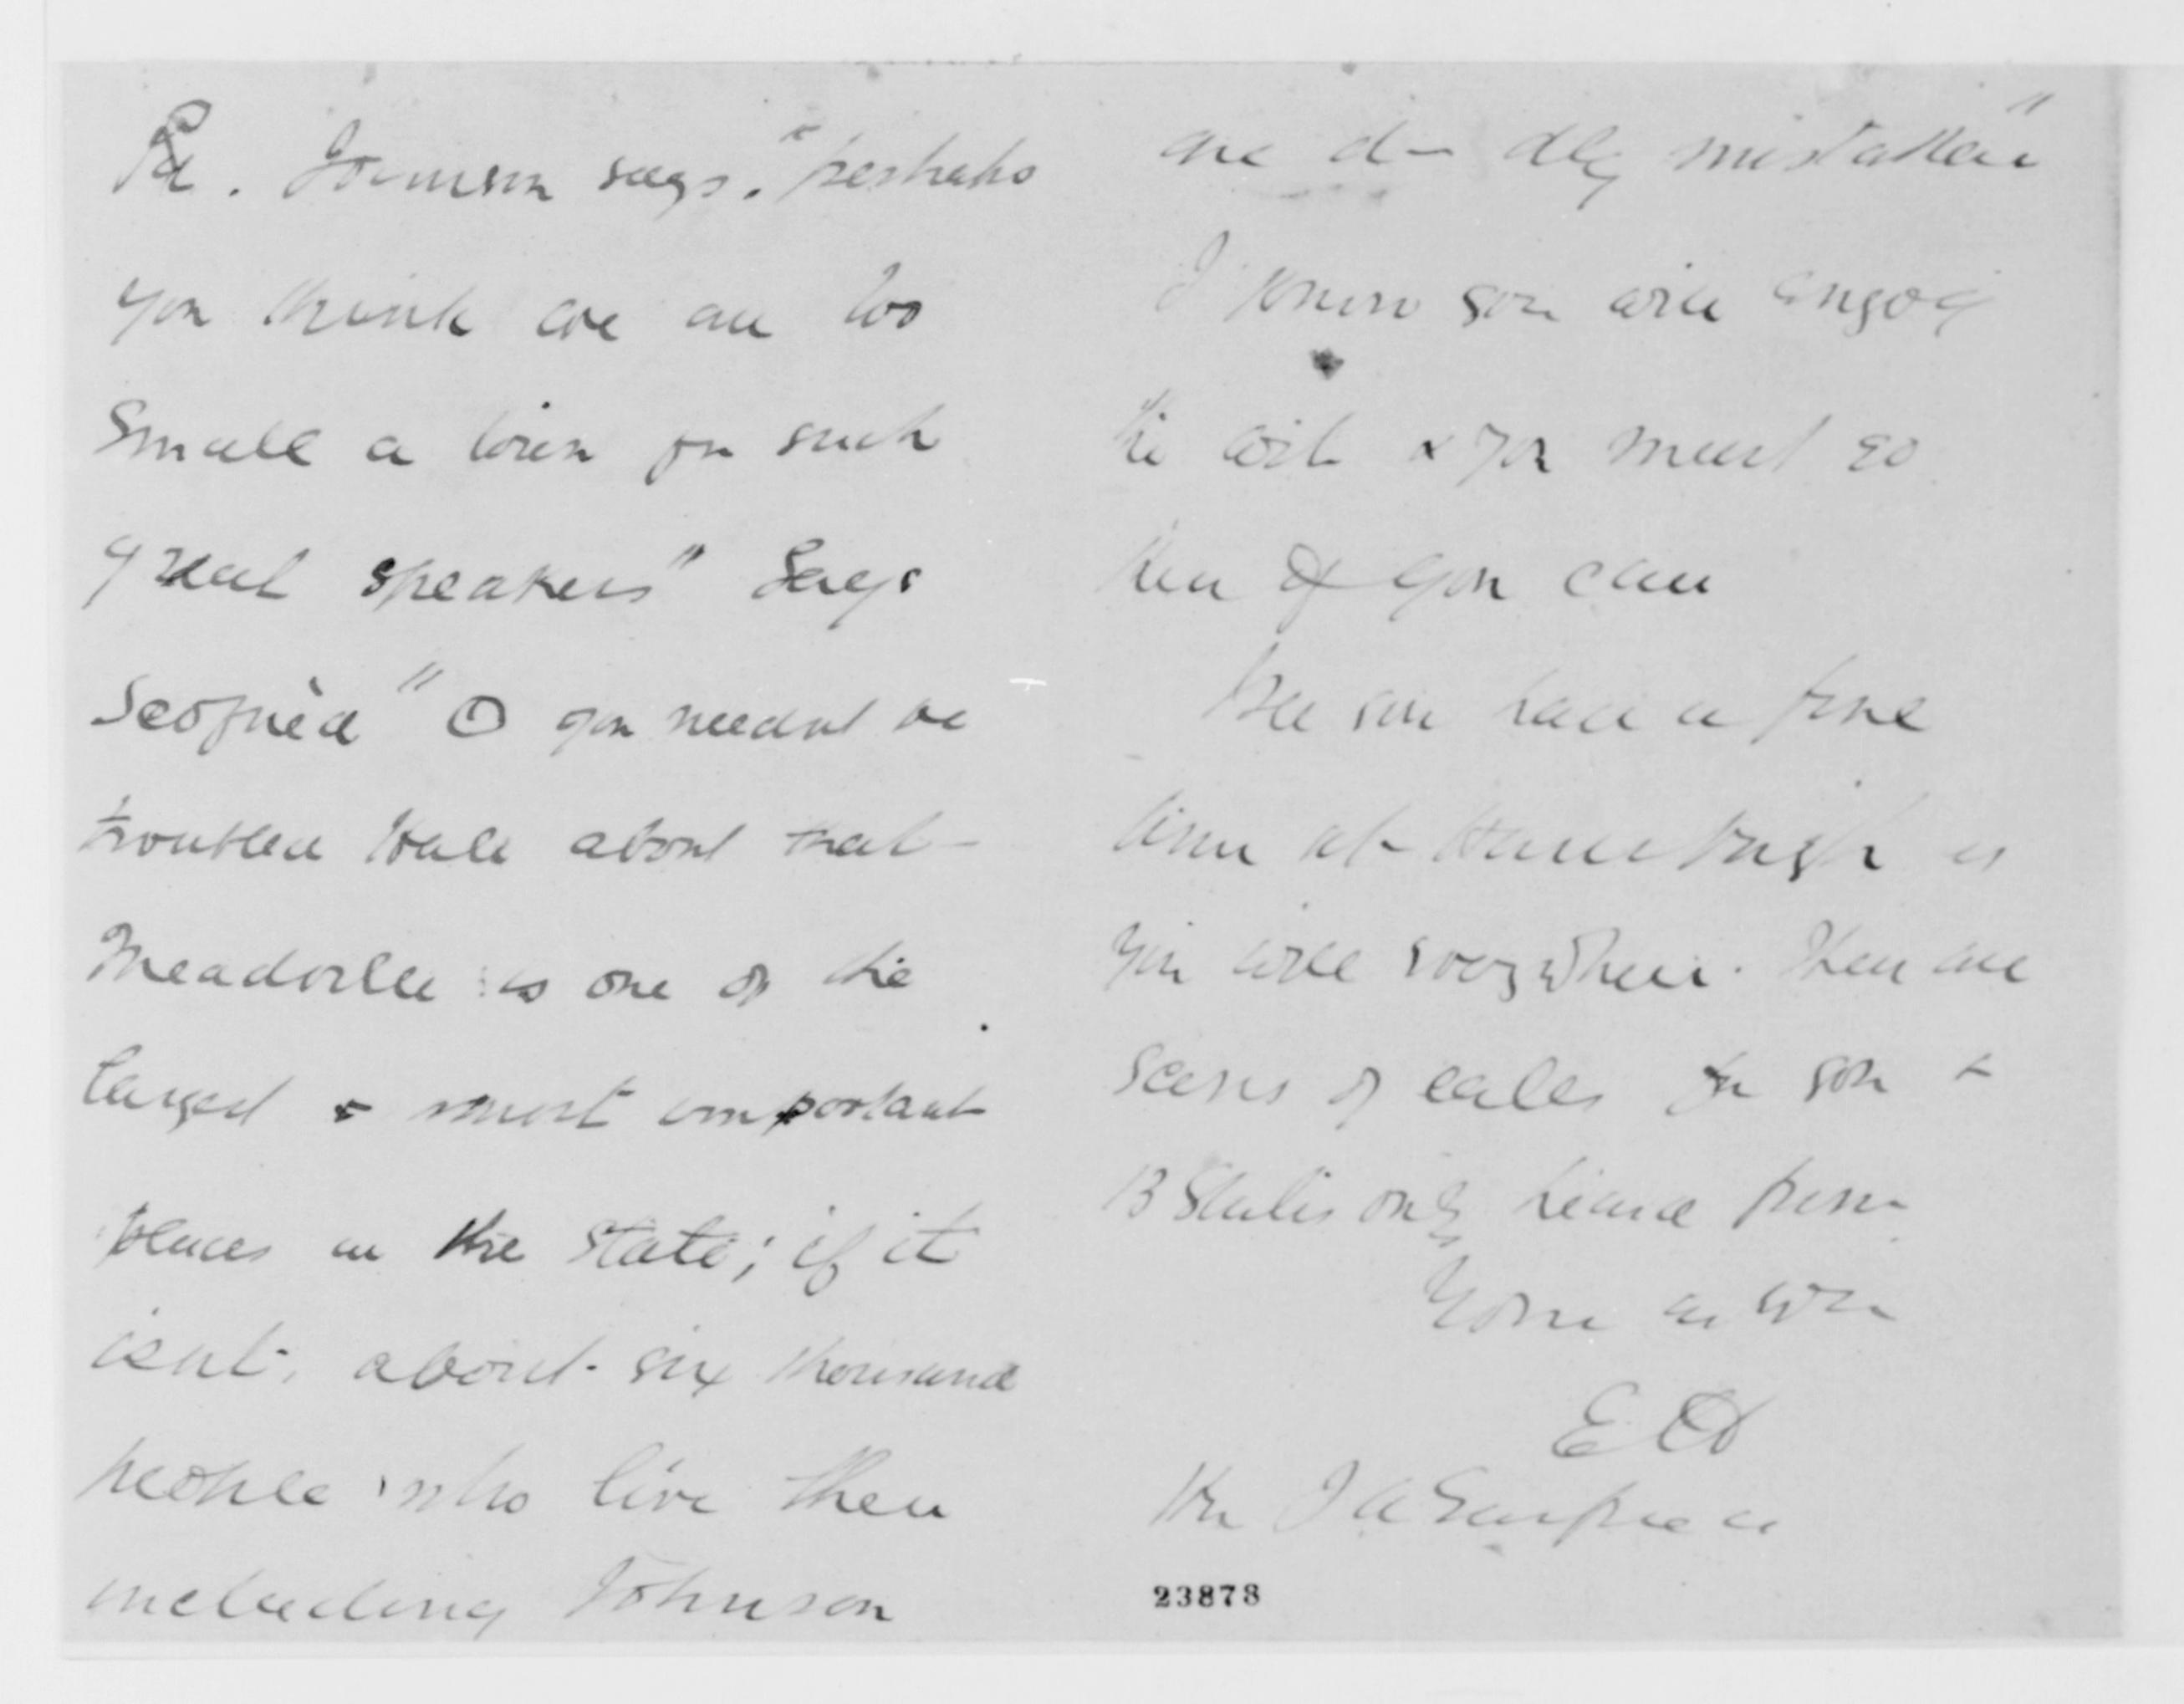 Pa. Johnson says. "perhaps
you think we are too
Small a town for such
great speakers" Says
Scofield "O you neednt be
troubled Hale about that -
Meadville is one of the
largest & most important
places in the State; if it
isnt, about six thousand
people who live there
including Johnson
are d- dly mistaken"
I know you will enjoy
the wit & you must go
there if you can
You will have a fine
time at Hamburgh as
you will everywhere. There are
scores of calls for you &
B States only heard from
Yours as ever
E H
Hon J A Garfield
23873